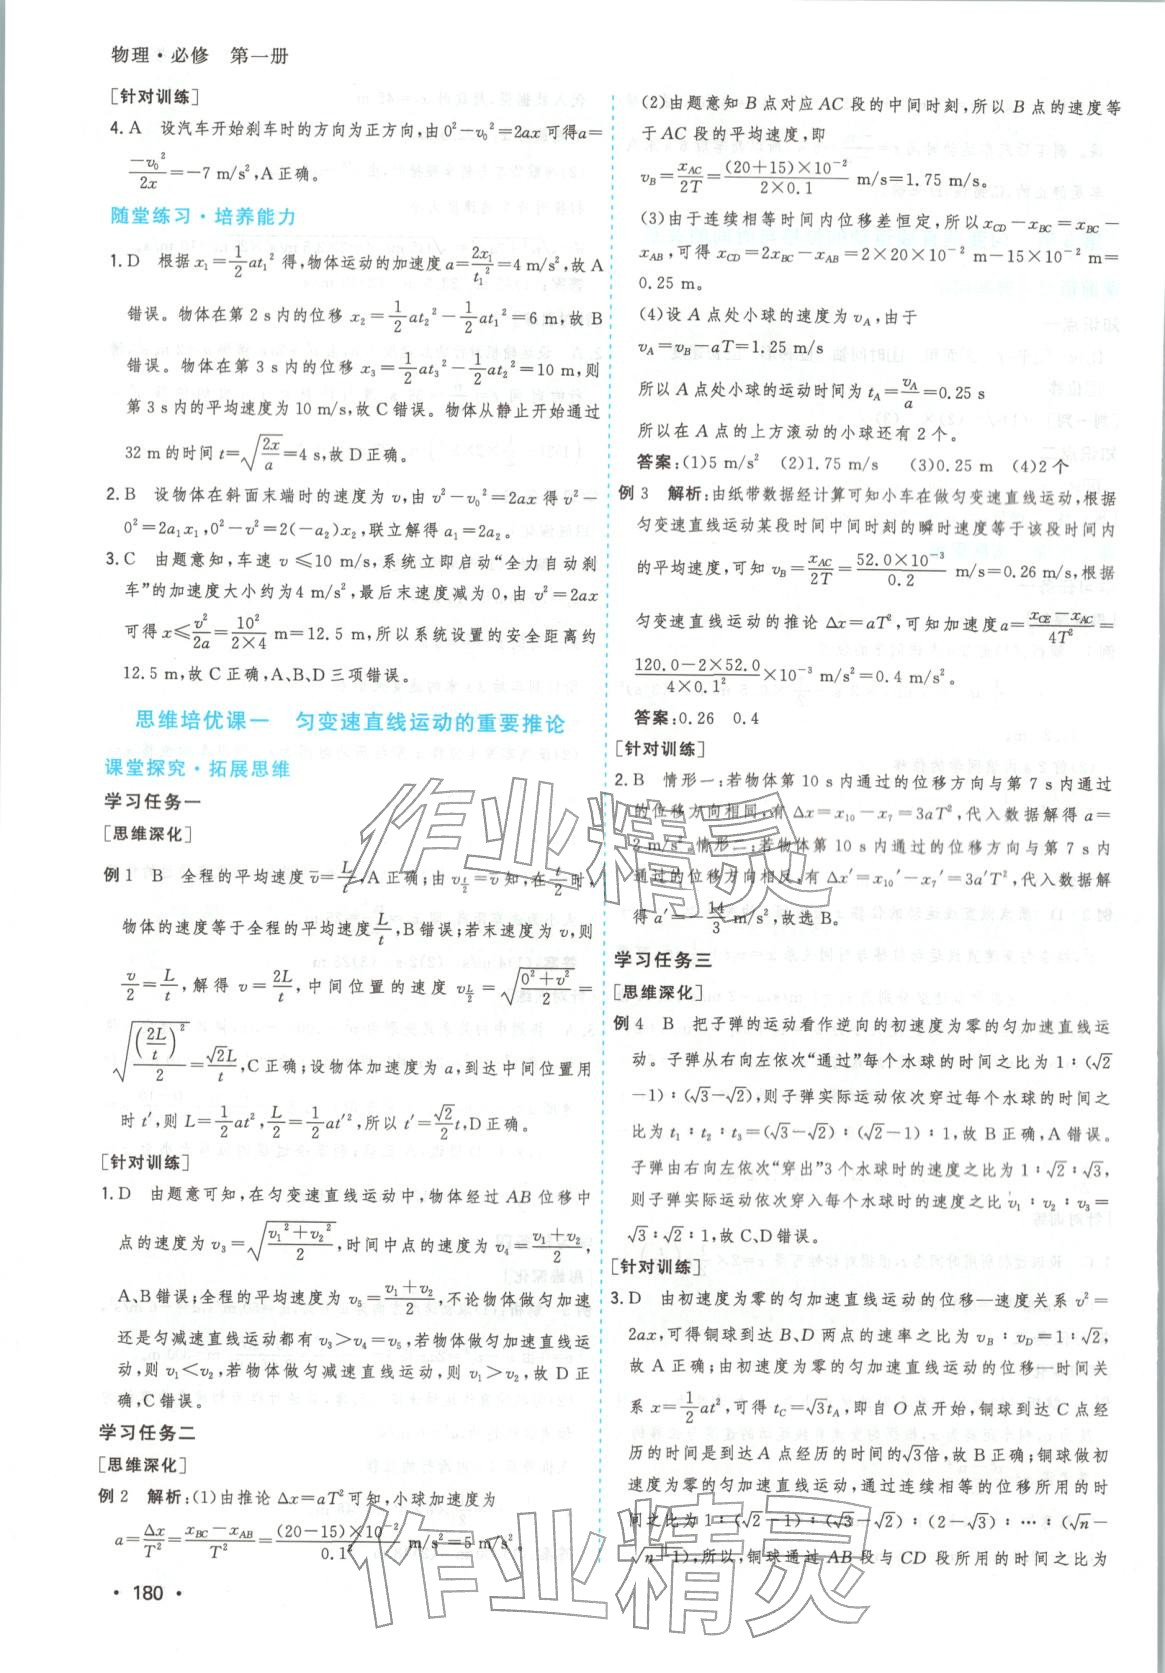 物理·必修　第一册
[针对训练]
4. A　设汽车开始刹车时的方向为正方向,由0²－v₀²＝2ax可得a＝
\frac{-v₀²}{2x}＝－7 m/s²,A正确。
随堂练习·培养能力
1. D　根据x₁＝\frac{1}{2}at₁²得,物体运动的加速度a＝\frac{2x₁}{t₁²}＝4 m/s²,故A
错误。物体在第2 s内的位移x₂＝\frac{1}{2}at₂²－\frac{1}{2}at₁²＝6 m,故B
错误。物体在第3 s内的位移x₃＝\frac{1}{2}at₃²－\frac{1}{2}at₂²＝10 m,则
第3 s内的平均速度为10 m/s,故C错误。物体从静止开始通过
32 m的时间t＝\sqrt{\frac{2x}{a}}＝4 s,故D正确。
2. B　设物体在斜面末端时的速度为v,由v²－v₀²＝2ax得v²－
0²＝2a₁x₁,0²－v²＝2(－a₂)x₂,联立解得a₁＝2a₂。
3. C　由题意知,车速v≤10 m/s,系统立即启动“全力自动刹
车”的加速度大小约为4 m/s²,最后末速度减为0,由v²＝2ax
可得x≤\frac{v²}{2a}＝\frac{10²}{2×4} m＝12.5 m,所以系统设置的安全距离约
12.5 m,故C正确,A、B、D三项错误。
思维培优课一　匀变速直线运动的重要推论
课堂探究·拓展思维
学习任务一
[思维深化]
例1　B　全程的平均速度\bar{v}＝\frac{L}{t},A正确;由v_{\frac{t}{2}}＝\bar{v}知,在\frac{t}{2}时,
物体的速度等于全程的平均速度\frac{L}{t},B错误;若末速度为v,则
\frac{v}{2}＝\frac{L}{t},解得v＝\frac{2L}{t},中间位置的速度v_{\frac{L}{2}}＝\sqrt{\frac{0²+v²}{2}}＝
\sqrt{\frac{(\frac{2L}{t})²}{2}}＝\frac{\sqrt{2}L}{t},C正确;设物体加速度为a,到达中间位置用
时t′,则L＝\frac{1}{2}at²,\frac{L}{2}＝\frac{1}{2}at′²,所以t′＝\frac{\sqrt{2}}{2}t,D正确。
[针对训练]
1. D　由题意可知,在匀变速直线运动中,物体经过AB位移中
点的速度为v₃＝\sqrt{\frac{v₁²+v₂²}{2}},时间中点的速度为v₄＝\frac{v₁+v₂}{2},
A、B错误;全程的平均速度为v₅＝\frac{v₁+v₂}{2},不论物体做匀加速
还是匀减速直线运动都有v₃＞v₄＝v₅,若物体做匀加速直线运
动,则v₁＜v₂,若物体做匀减速直线运动,则v₁＞v₂,故D正
确,C错误。
学习任务二
[思维深化]
例2　解析:(1)由推论Δx＝aT²可知,小球加速度为
a＝\frac{Δx}{T²}＝\frac{x_{BC}－x_{AB}}{T²}＝\frac{(20－15)×10^{-2}}{0.1²} m/s²＝5 m/s²。
· 180 ·
(2)由题意知B点对应AC段的中间时刻,所以B点的速度等
于AC段的平均速度,即
v_B＝\frac{x_{AC}}{2T}＝\frac{(20+15)×10^{-2}}{2×0.1} m/s＝1.75 m/s。
(3)由于连续相等时间内位移差恒定,所以x_{CD}－x_{BC}＝x_{BC}－
x_{AB},可得x_{CD}＝2x_{BC}－x_{AB}＝2×20×10^{-2} m－15×10^{-2} m＝
0.25 m。
(4)设A点处小球的速度为v_A,由于
v_A＝v_B－aT＝1.25 m/s
所以A点处小球的运动时间为t_A＝\frac{v_A}{a}＝0.25 s
所以在A点的上方滚动的小球还有2个。
答案:(1)5 m/s²　(2)1.75 m/s　(3)0.25 m　(4)2个
例3　解析:由纸带数据经计算可知小车在做匀变速直线运动,根据
匀变速直线运动某段时间中间时刻的瞬时速度等于该段时间内
的平均速度,可知v_B＝\frac{x_{AC}}{2T}＝\frac{52.0×10^{-3}}{0.2} m/s＝0.26 m/s,根据
匀变速直线运动的推论Δx＝aT²,可知加速度a＝\frac{x_{CE}－x_{AC}}{4T²}＝
\frac{120.0－2×52.0}{4×0.1²}×10^{-3} m/s²＝0.4 m/s²。
答案:0.26　0.4
[针对训练]
2. B　情形一:若物体第10 s内通过的位移方向与第7 s内通过
的位移方向相同,有Δx＝x₁₀－x₇＝3aT²,代入数据解得a＝
2 m/s²。情形二:若物体第10 s内通过的位移方向与第7 s内
通过的位移方向相反,有Δx′＝x₁₀′－x₇′＝3a′T²,代入数据解
得a′＝－\frac{14}{3} m/s²,故选B。
学习任务三
[思维深化]
例4　B　把子弹的运动看作逆向的初速度为零的匀加速直线运
动。子弹从右向左依次“通过”每个水球的时间之比为1∶(√2
－1)∶(√3－√2),则子弹实际运动依次穿过每个水球的时间之
比为t₁∶t₂∶t₃＝(√3－√2)∶(√2－1)∶1,故B正确,A错误。
子弹由右向左依次“穿出”3个水球时的速度之比为1∶√2∶√3,
则子弹实际运动依次穿入每个水球时的速度之比v₁∶v₂∶v₃＝
√3∶√2∶1,故C、D错误。
[针对训练]
3. D　由初速度为零的匀加速直线运动的位移—速度关系v²＝
2ax,可得铜球到达B、D两点的速率之比为v_B∶v_D＝1∶√2,
故A正确;由初速度为零的匀加速直线运动的位移—时间关
系x＝\frac{1}{2}at²,可得t_C＝√3t_A,即自O点开始,铜球到达C点经
历的时间是到达A点经历的时间的√3倍,故B正确;铜球做初
速度为零的匀加速直线运动,通过连续相等的位移的时间之
比为1∶(√2－1)∶(√3－√2)∶(2－√3)∶…∶(√n－
√n－1),所以,铜球通过AB段与CD段所用的时间之比为
作业精灵
作业精灵